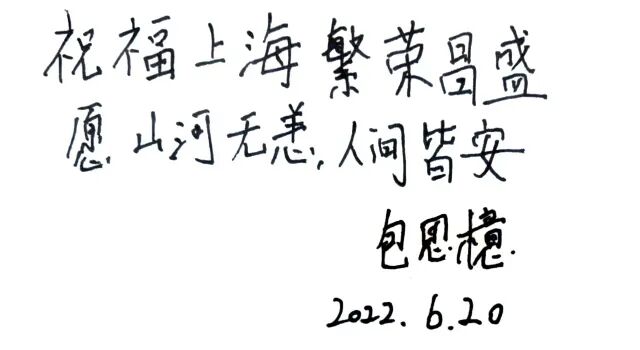 祝福上海繁荣昌盛
愿山河无恙,人间皆安
包恩檍.
2022.6.20